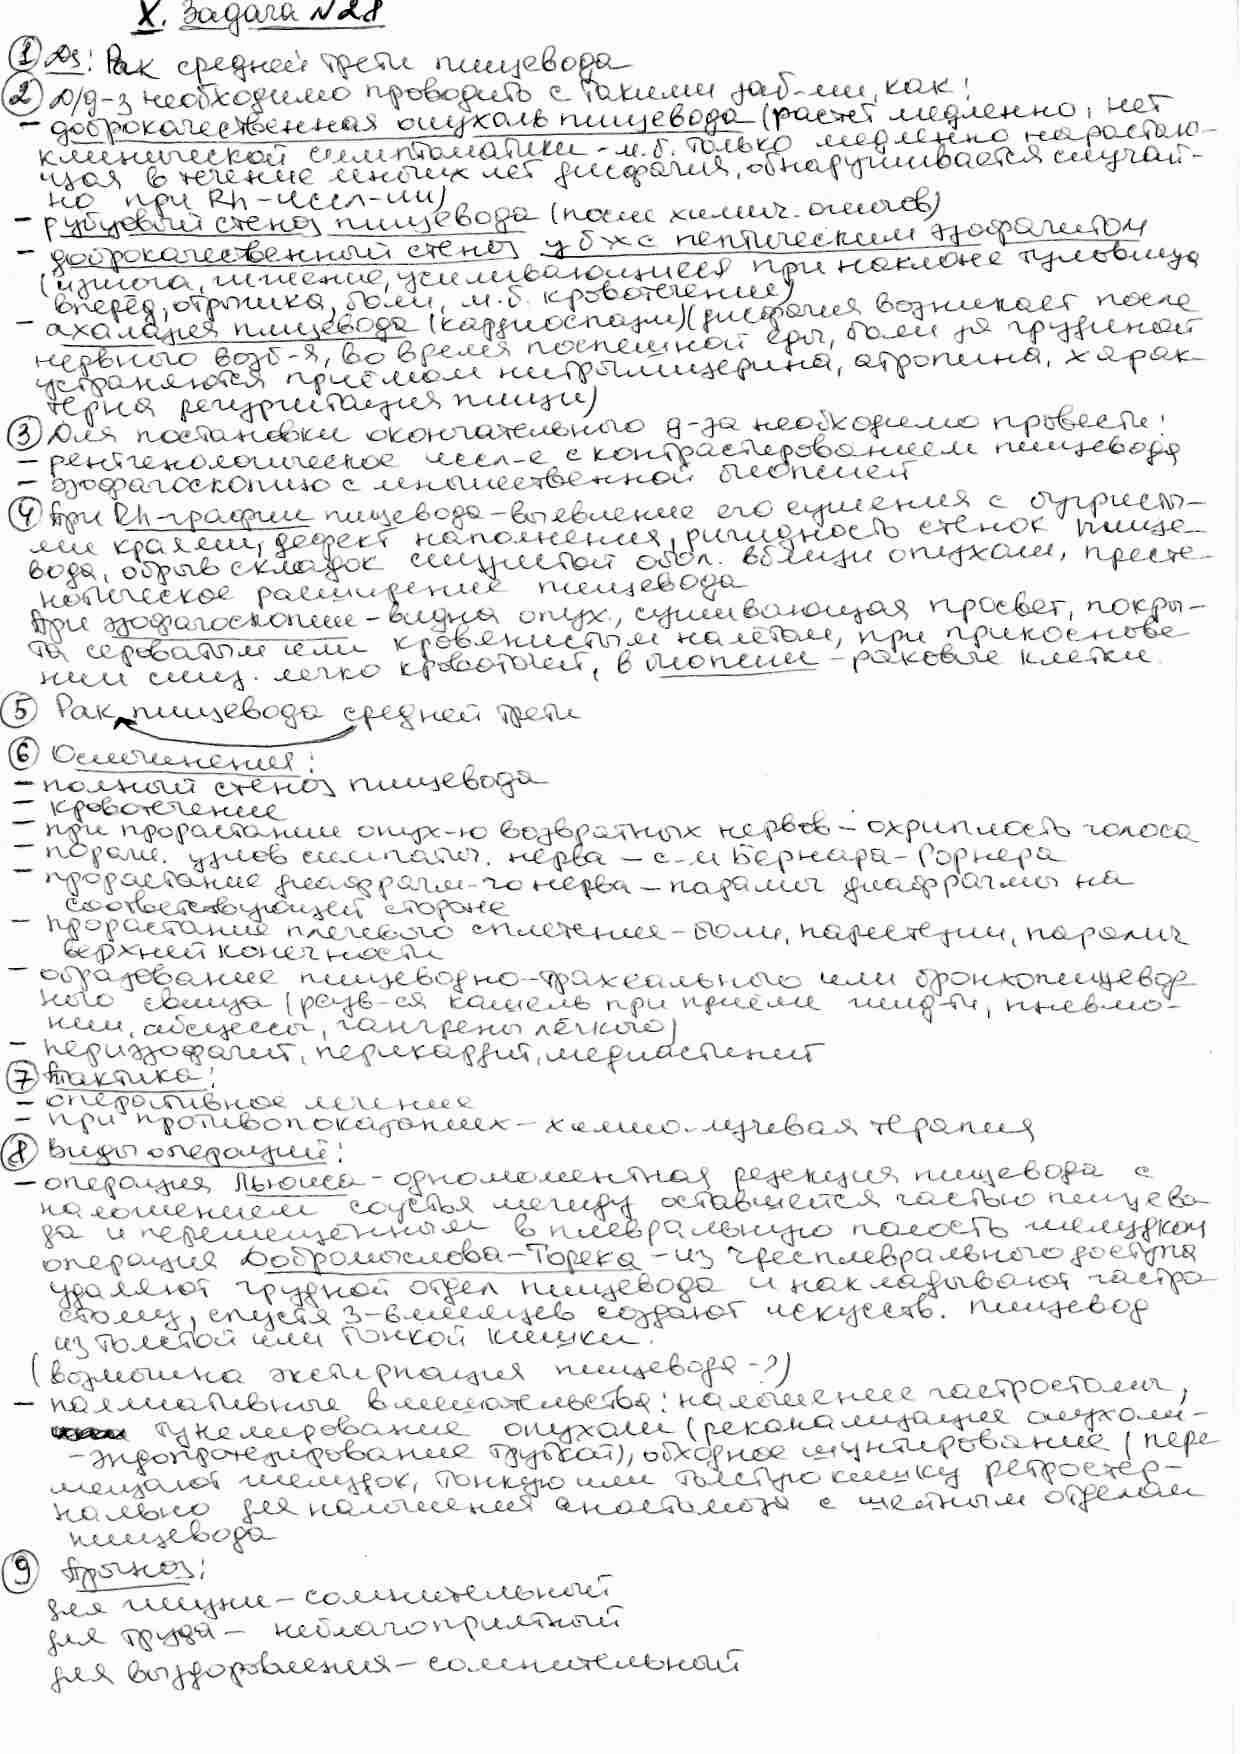 X. Задача №28
① Дз: Рак средней трети пищевода
② Д/д-з необходимо проводить с такими заб-ми, как:
- доброкачественная опухоль пищевода (растёт медленно, нет
клинической симптоматики - м.б. только медленно нарастаю-
щая в течение многих лет дисфагия, обнаруживается случай-
но при Rh-иссл-ии)
- рубцовый стеноз пищевода (после химич. ожогов)
- доброкачественный стеноз у б-х с пептическим эзофагитом
(изжога, жжение, усиливающиеся при наклоне туловища
вперёд, отрыжка, боли, м.б. кровотечение)
- ахалазия пищевода (кардиоспазм) (дисфагия возникает после
нервного возб-я, во время поспешной еды, боли за грудиной
устраняются приёмом нитроглицерина, атропина, харак-
терна регургитация пищи)
③ Для постановки окончательного д-за необходимо провести:
- рентгенологическое иссл-е с контрастированием пищевода
- эзофагоскопию с множественной биопсией
④ При Rh-графии пищевода - выявление его сужения с бугристы-
ми краями, дефект наполнения, ригидность стенок пище-
вода, обрыв складок слизистой обол. вблизи опухоли, престе-
нотическое расширение пищевода
При эзофагоскопии - видна опух., суживающая просвет, покры-
та сероватым или кровянистым налётом, при прикоснове
нии слиз. легко кровоточит, в биопсии - раковые клетки.
⑤ Рак пищевода средней трети
⑥ Осложнения:
- полный стеноз пищевода
- кровотечение
- при прорастании опух-ю возвратных нервов - охриплость голоса
- пораж. узлов симпатич. нерва - с-м Бернара-Горнера
- прорастание диафрагм-го нерва - паралич диафрагмы на
соответствующей стороне
- прорастание плечевого сплетения - боли, парестезии, паралич
верхней конечности
- образование пищеводно-трахеального или бронхопищевод
ного свища (разв-ся кашель при приёме жид-ти, пневмо-
нии, абсцессы, гангрены лёгкого)
- периэзофагит, перикардит, медиастинит
⑦ Тактика:
- оперативное лечение
- при противопоказаниях - химио-лучевая терапия
⑧ Виды операций:
- операция Льюиса - одномоментная резекция пищевода с
наложением соустья между оставшейся частью пищево
да и перемещённым в плевральную полость желудком
операция Добромыслова-Торека - из чресплеврального доступа
удаляют грудной отдел пищевода и накладывают гастро
стому, спустя 3-6 месяцев создают искусств. пищевод
из толстой или тонкой кишки.
(возможна экстирпация пищевода - ?)
- паллиативные вмешательства: наложение гастростомы,
тунелирование опухоли (реканализация опухоли -
- эндопротезирование трубкой), обходное шунтирование (пере
мещают желудок, тонкую или толстую кишку ретростер-
нально для наложения анастомоза с шейным отделом
пищевода
⑨ Прогноз:
для жизни - сомнительный
для труда - неблагоприятный
для выздоровления - сомнительный